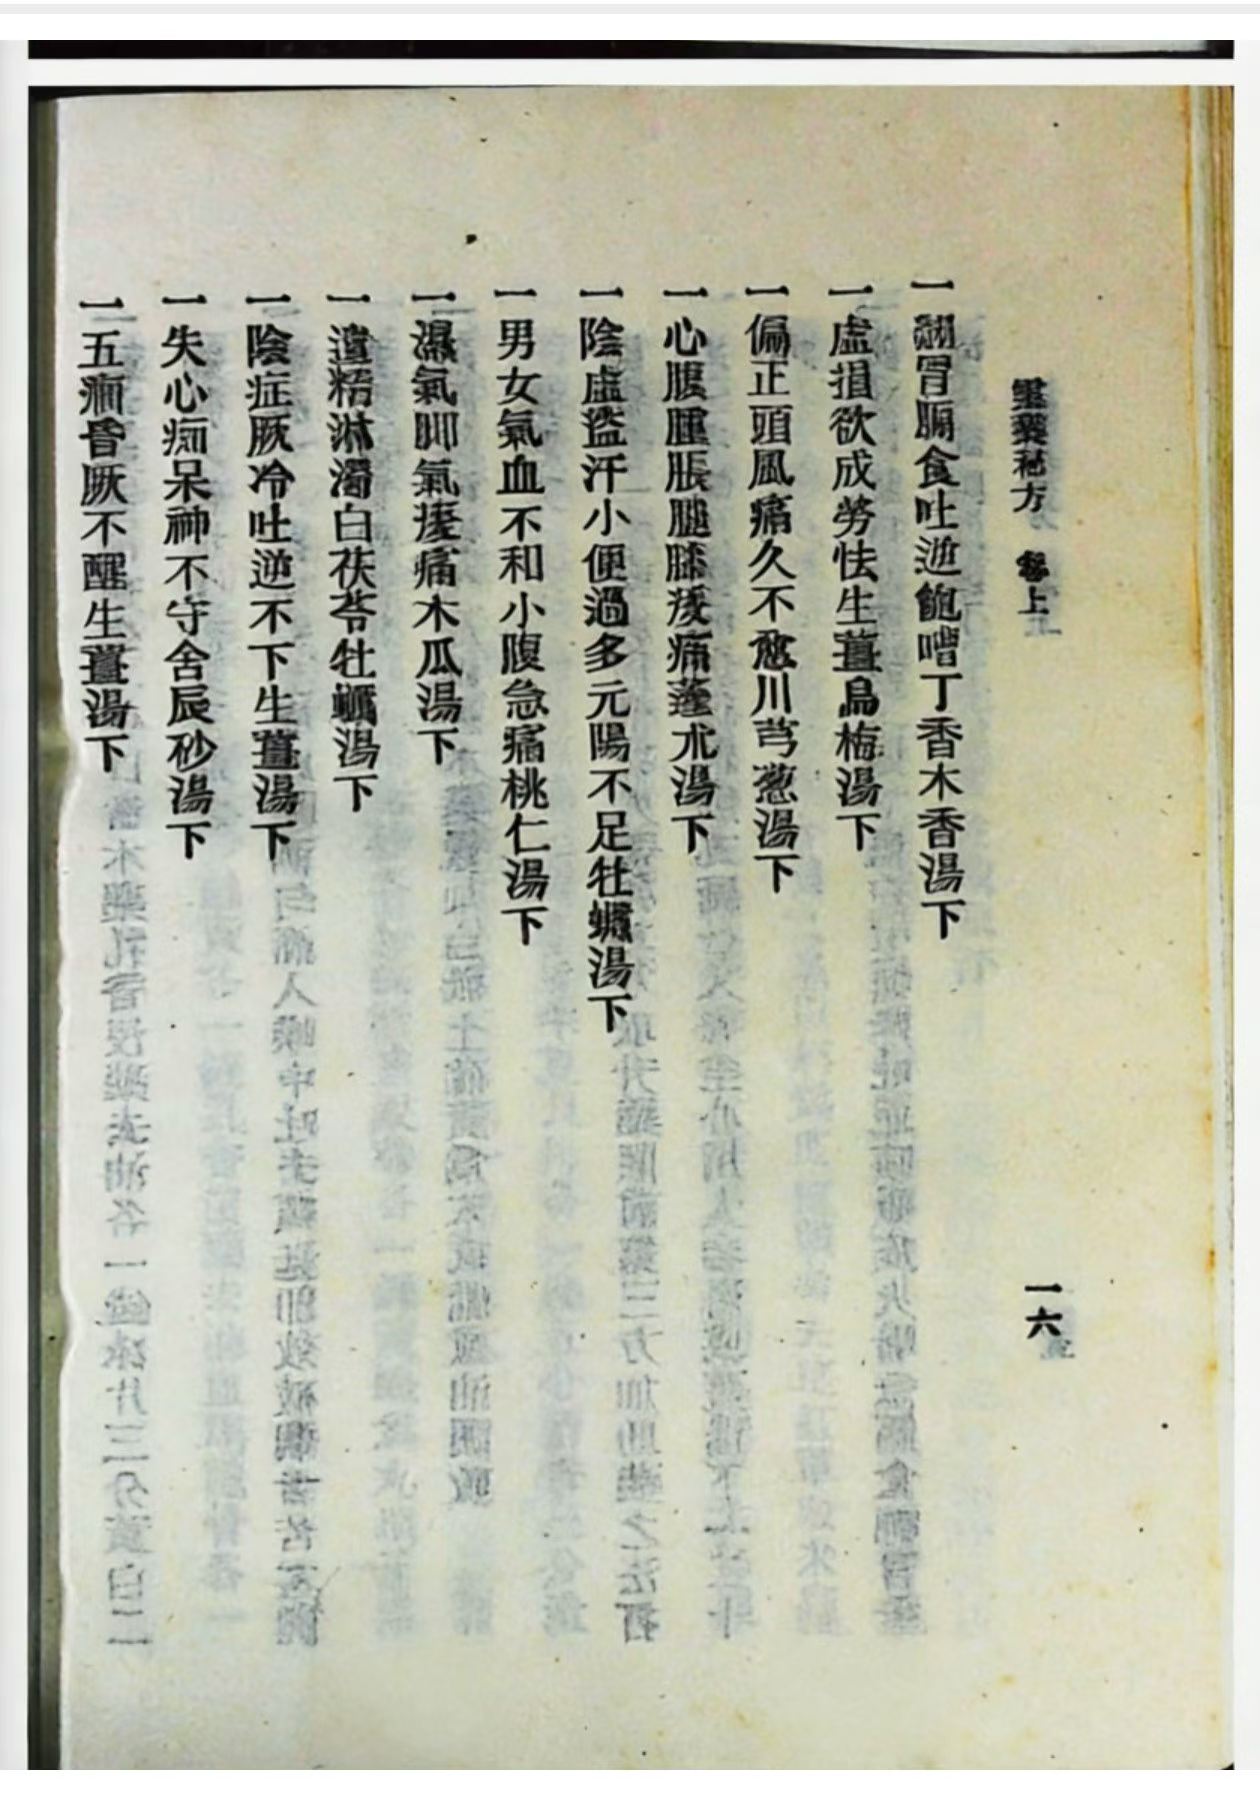 靈藥秘方 卷上
一六
一翻胃膈食吐逆飽嘈丁香木香湯下
一虛損欲成勞怯生薑烏梅湯下
一偏正頭風痛久不愈川芎葱湯下
一心腹腫脹腿膝痠痛蓬朮湯下
一陰虛盜汗小便過多元陽不足牡蠣湯下
一男女氣血不和小腹急痛桃仁湯下
一濕氣脚氣痠痛木瓜湯下
一遺精淋濁白茯苓牡蠣湯下
一陰症厥冷吐逆不下生薑湯下
一失心痴呆神不守舍辰砂湯下
一五癎昏厥不醒生薑湯下